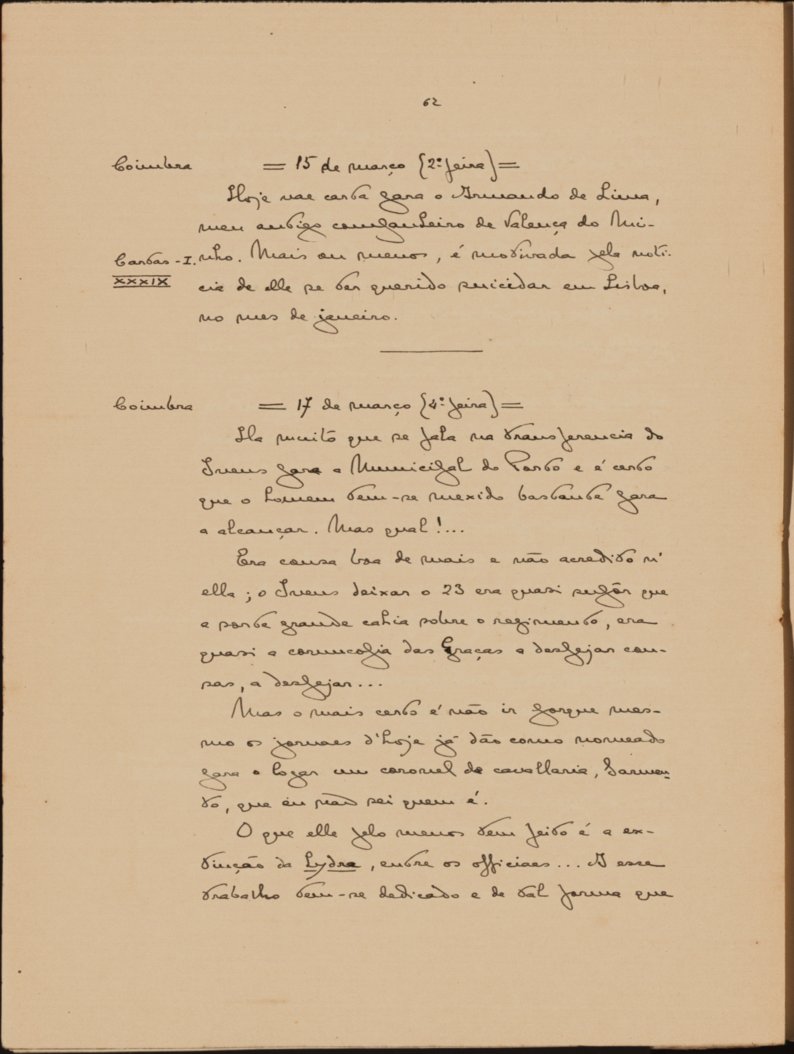 62
Coimbra = 15 de março (2ª feira) =
Hoje vae carta para o Armando de Lima,
meu antigo companheiro de Valença do Mi-
Cartas - I. nho. Mais ou menos, é motivada pela noti-
XXXIX cia de elle se ter querido suicidar em Lisboa,
no mes de janeiro.
Coimbra = 17 de março (4ª feira) =
Ha muito que se fala na transferencia do
Ivens para a Municipal do Porto e é certo
que o homem tem-se mexido bastante para
a alcançar. Mas qual!...
Era cousa boa de mais e não acredito n'
ella; o Ivens deixar o 23 era quasi supôr que
a sorte grande cahia sobre o regimento, era
quasi a cornucopia das Graças a despejar cou-
sas, a despejar...
Mas o mais certo é não ir porque mes-
mo os jornaes d'hoje já dão como nomeado
para o logar um coronel de cavallaria, Sarmen-
to, que eu não sei quem é.
O que elle pelo menos tem feito é a ex-
tincção da Lydra, entre os officiaes... A esse
trabalho tem-se dedicado e de tal forma que